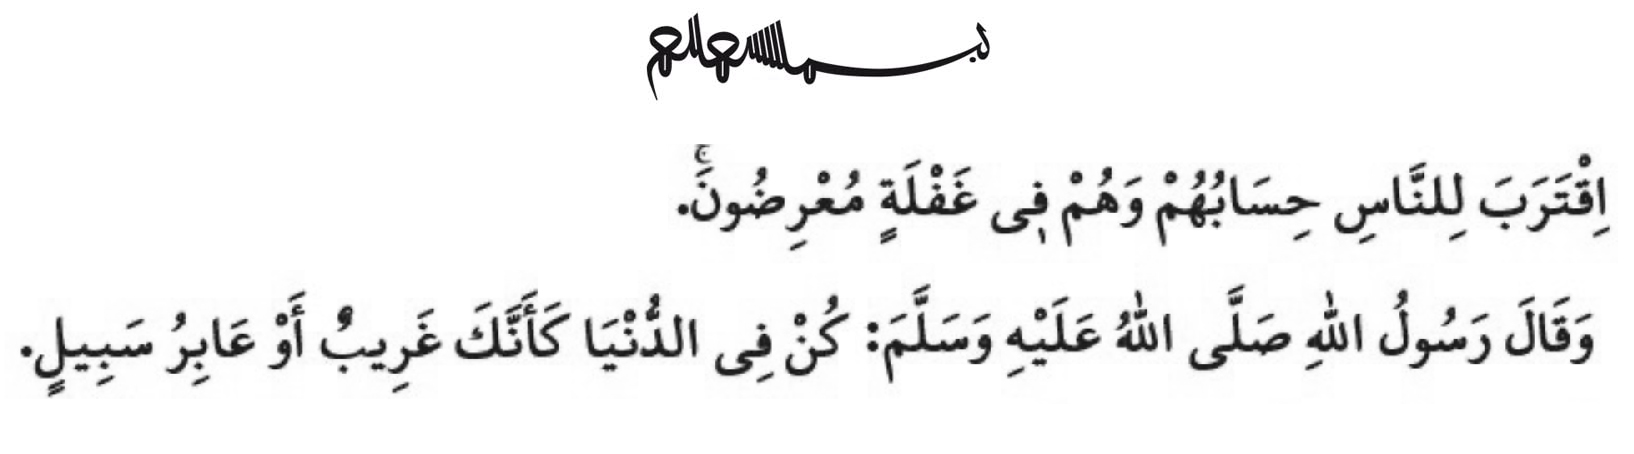 بسم الله الرحمن الرحيم
اِقْتَرَبَ لِلنَّاسِ حِسَابُهُمْ وَهُمْ فٖى غَفْلَةٍ مُعْرِضُونَۚ.
وَقَالَ رَسُولُ اللهِ صَلَّى اللهُ عَلَيْهِ وَسَلَّمَ: كُنْ فِى الدُّنْيَا كَأَنَّكَ غَرِيبٌ أَوْ عَابِرُ سَبِيلٍ.